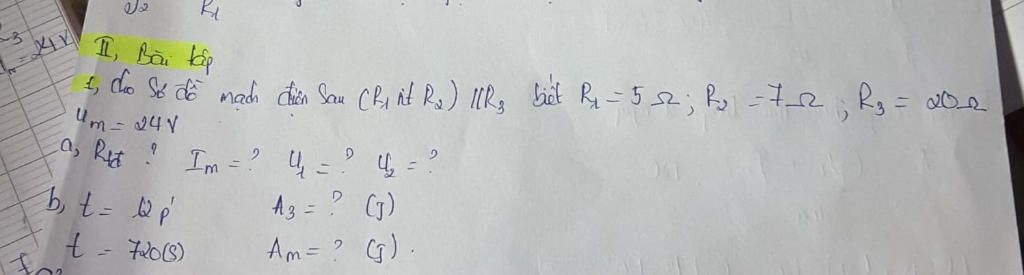 R1
= 24V
II, Bài tập
1, Cho Sơ đồ mạch điện Sau (R1 nt R2) // R3 biết R1 = 5Ω ; R2 = 7Ω ; R3 = 20Ω
Um = 24V
a, Rtđ ? Im = ? U1 = ? U2 = ?
b, t = 12p' A3 = ? (J)
t = 720(s) Am = ? (J) .